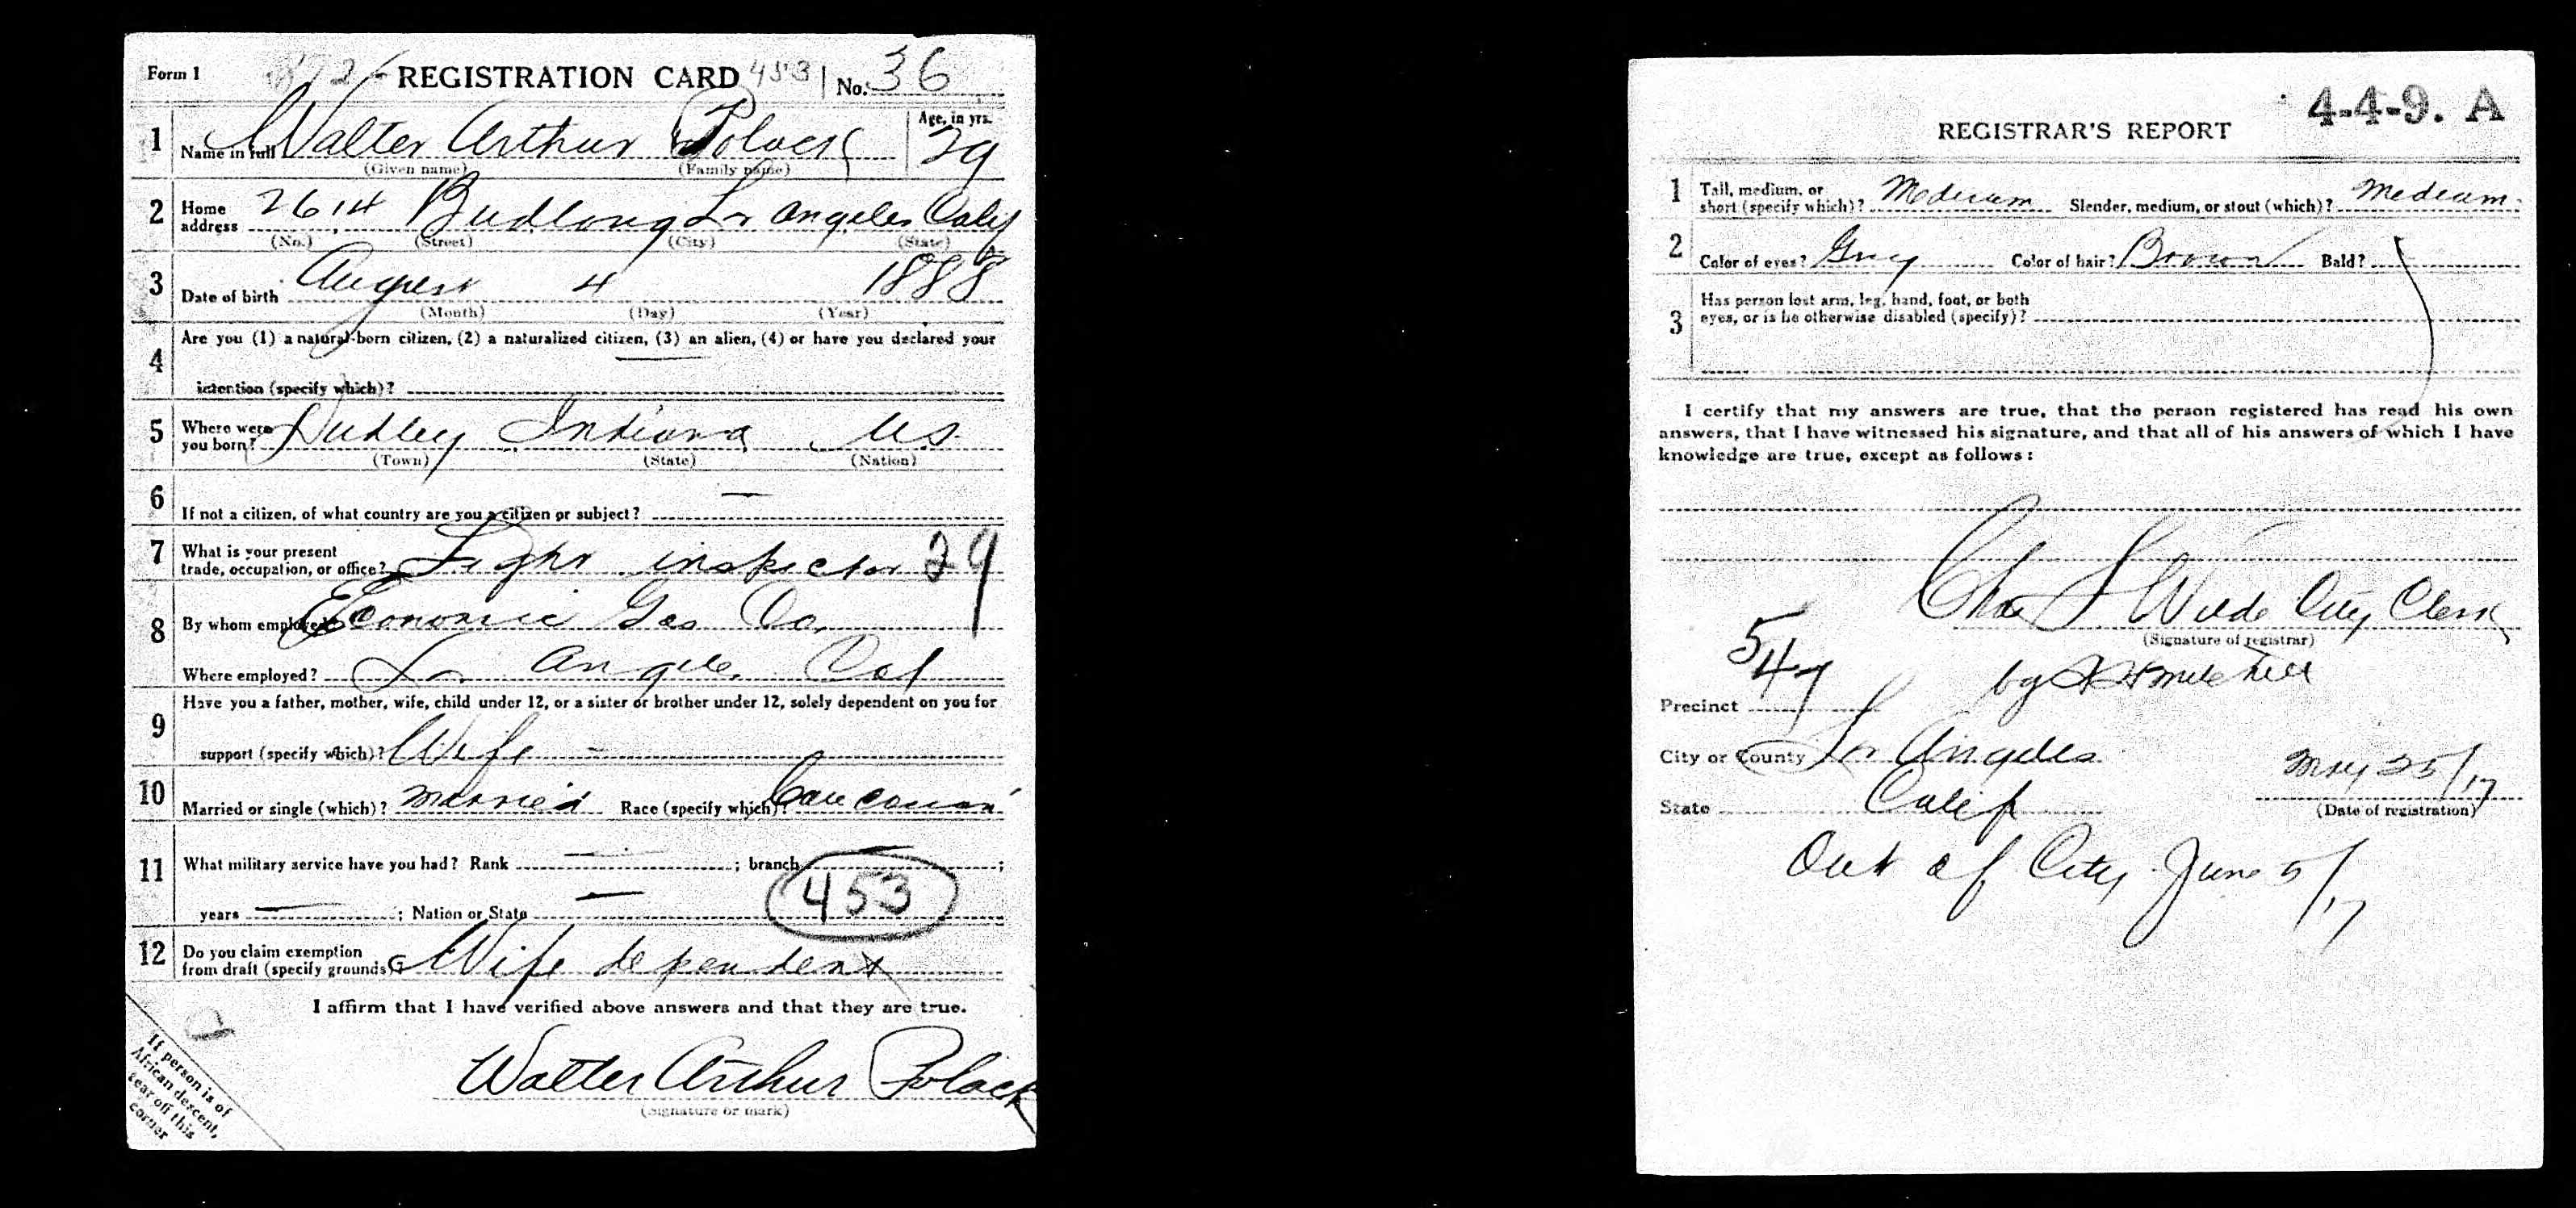 Form 1 REGISTRATION CARD 453 No. 36
1 Name in full Walter Arthur Polack Age, in yrs. 29
(Given name) (Family name)
2 Home address 2614 Budlong Los Angeles Calif
(No.) (Street) (City) (State)
3 Date of birth August 4 1888
(Month) (Day) (Year)
4 Are you (1) a natural-born citizen, (2) a naturalized citizen, (3) an alien, (4) or have you declared your
intention (specify which)?
5 Where were you born? Dudley Indiana US
(Town) (State) (Nation)
6 If not a citizen, of what country are you a citizen or subject? —
7 What is your present trade, occupation, or office? Light inspector 29
8 By whom employed? Economic Gas Co.
Where employed? Los Angeles Cal
9 Have you a father, mother, wife, child under 12, or a sister or brother under 12, solely dependent on you for
support (specify which)? Wife –
10 Married or single (which)? Married Race (specify which)? Caucasian
11 What military service have you had? Rank — ; branch — ;
years — ; Nation or State —
453
12 Do you claim exemption from draft (specify grounds)? Wife dependent
I affirm that I have verified above answers and that they are true.
Walter Arthur Polack
(Signature or mark)
If person is of
African descent,
tear off this
corner
4-4-9. A
REGISTRAR'S REPORT
1 Tall, medium, or short (specify which)? Medium Slender, medium, or stout (which)? Medium
2 Color of eyes? Gray Color of hair? Brown Bald?
3 Has person lost arm, leg, hand, foot, or both
eyes, or is he otherwise disabled (specify)?
I certify that my answers are true, that the person registered has read his own
answers, that I have witnessed his signature, and that all of his answers of which I have
knowledge are true, except as follows:
Chas L Wilde City Clerk
(Signature of registrar)
by Mitchell
Precinct 547
City or County Los Angeles
State Calif May 25/17
(Date of registration)
Out of City June 5/17